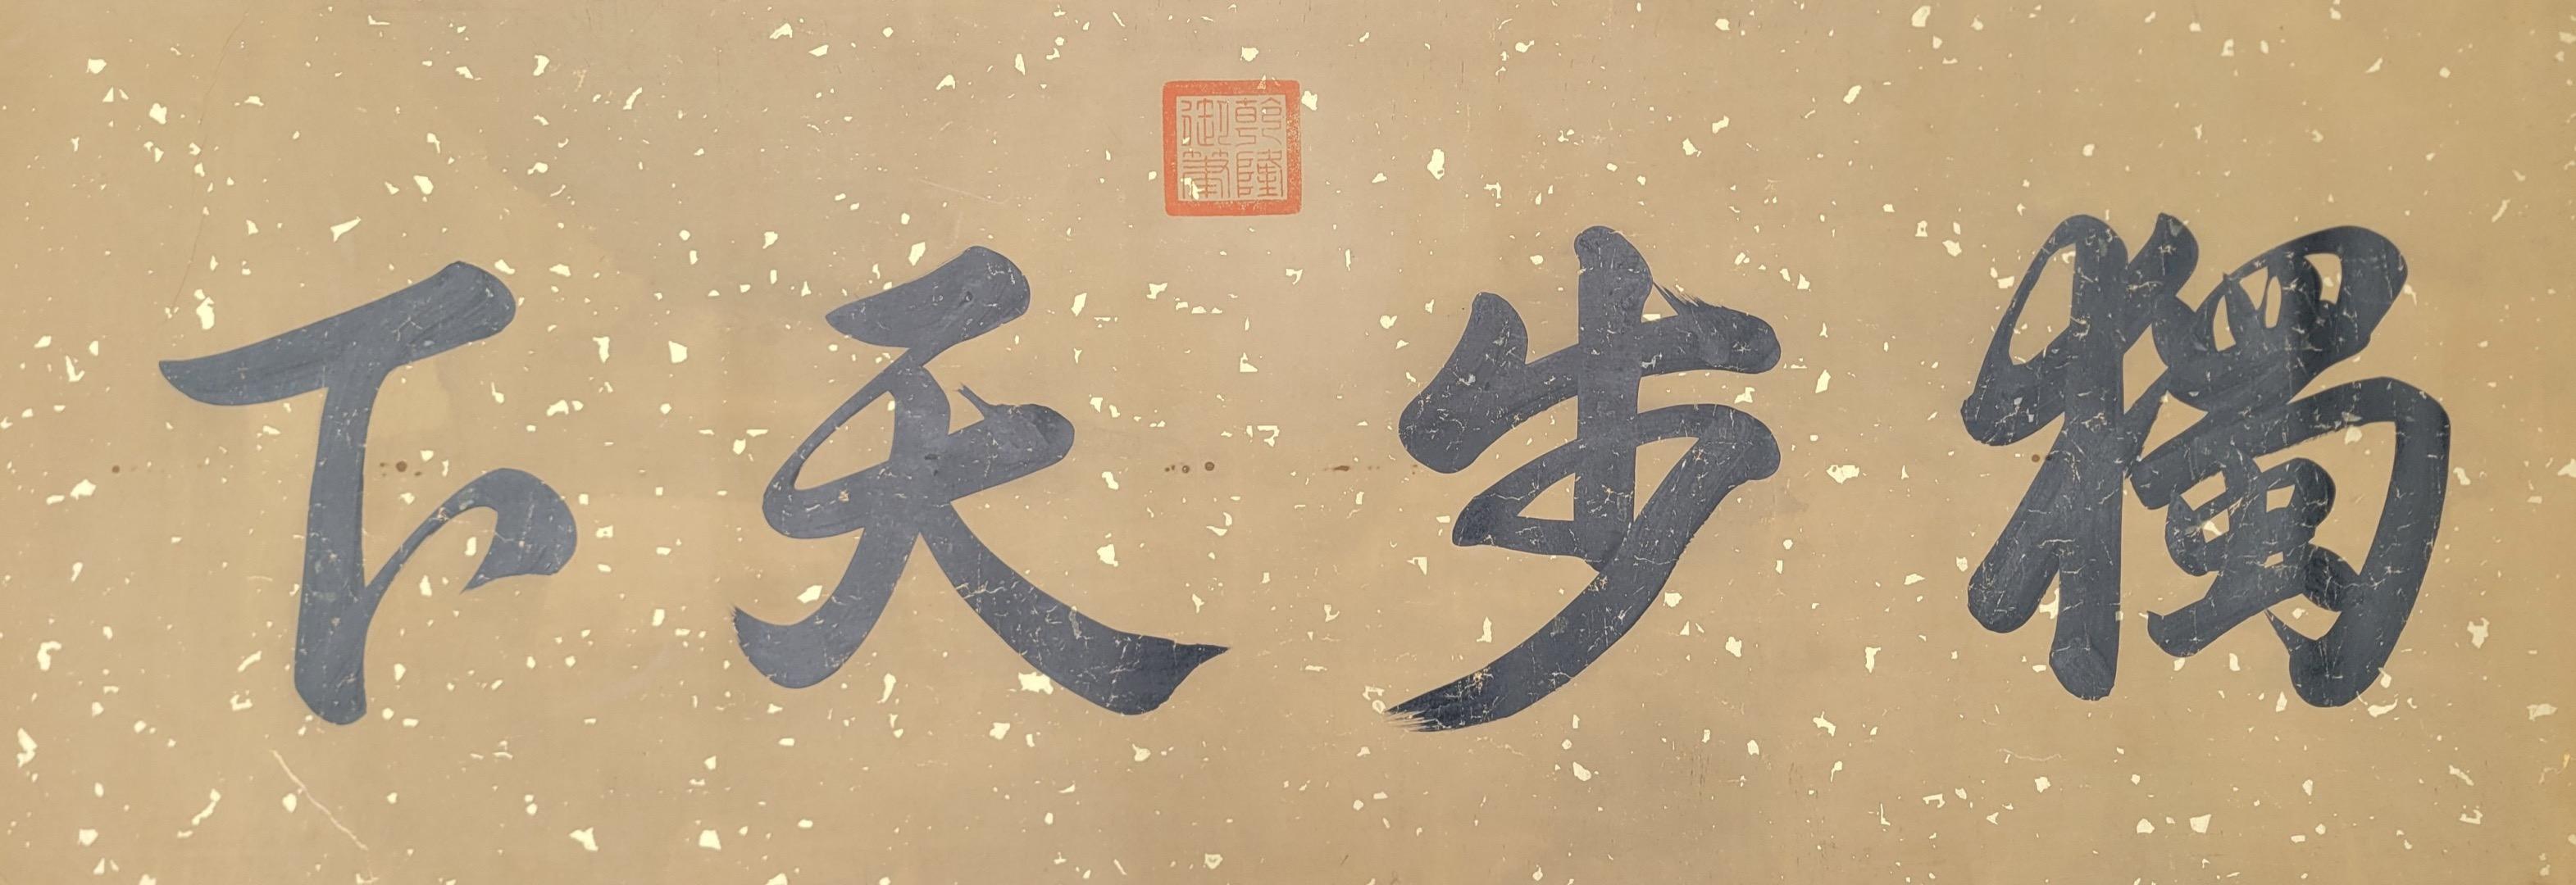 獨步天下
乾隆
御筆